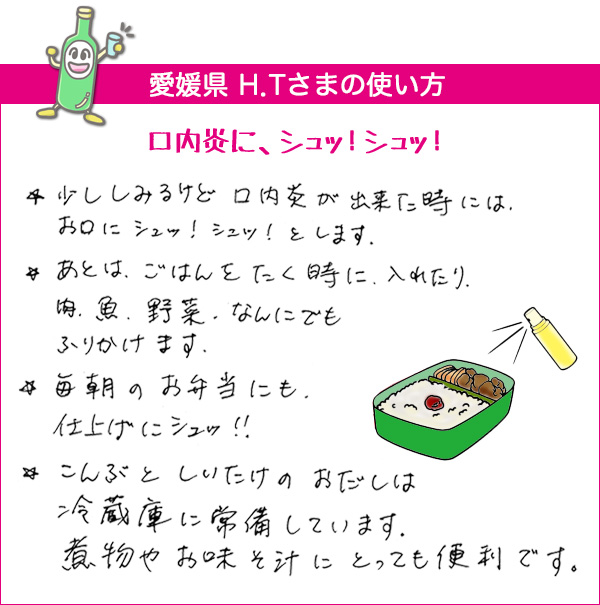 愛媛県 H.Tさまの使い方
口内炎に、シュッ!シュッ!
★ 少ししみるけど 口内炎が出来た時には、
お口に シュッ! シュッ! とします。
★ あとは、ごはんを たく時に、入れたり、
肉、魚、野菜、なんにでも
ふりかけます。
★ 毎朝の お弁当にも、
仕上げにシュッ!!
★ こんぶと しいたけの おだしは
冷蔵庫に常備しています。
煮物や お味そ汁に とっても 便利です。